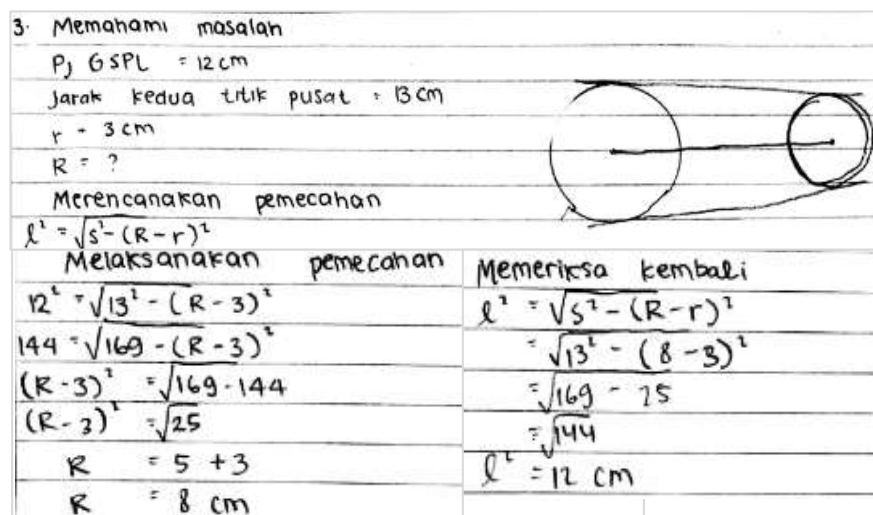 3. Memahami masalah
Pj GSPL = 12 cm
Jarak kedua titik pusat = 13 cm
r = 3 cm
R = ?
Merencanakan pemecahan
l² = √s² - (R - r)²
Melaksanakan pemecahan
12² = √13² - (R - 3)²
144 = √169 - (R - 3)²
(R - 3)² = √169 - 144
(R - 3)² = √25
R = 5 + 3
R = 8 cm
Memeriksa kembali
l² = √s² - (R - r)²
= √13² - (8 - 3)²
= √169 - 25
= √144
l² = 12 cm